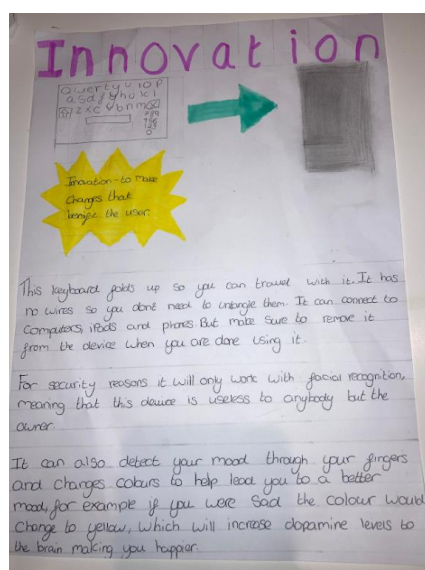 Innovation
Qwertyuiop
Innovation-to make
changes that
the user.
This keyboard folds up so you can travel with it. It has
no wires so you dont need to untangle them. It can connect to
computers, iPads and phones. But make sure to remove it
from the device when you are done using it.
For security reasons it will only work with facial recognition,
meaning that this device is useless to anybody but the
owner
It can also detect your mood through your fingers
and changes colours to help lead you to a better
mood, for example if you were sad the colour would
change to yellow, which will increase dopamine levels to
the brain making you happier.